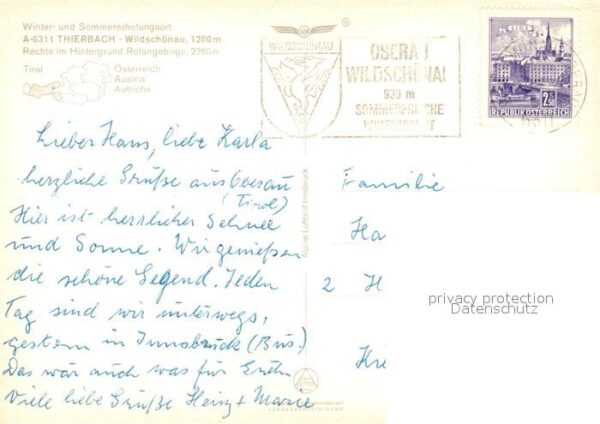 Winter- und Sommererholungsort
A-6311 THIERBACH - Wildschönau, 1200 m
Rechts im Hintergrund Rofangebirge, 2260 m
Tirol
Österreich
Austria
Autriche
WILDSCHÖNAU
OBERAU
WILDSCHÖNAU
936 m
SOMMERFRISCHE
WINTERSPORT
LINZ
2.50
REPUBLIK ÖSTERREICH
Lieber Hans, liebe Karla
herzliche Grüße aus Oberau
(Tirol)
Hier ist herrlicher Schnee
und Sonne. Wir genießen
die schöne Gegend. Jeden
Tag sind wir unterwegs,
gestern in Innsbruck (Bus.)
Das wär auch was für
Viele liebe Grüße Heinz + Marie
Alpine Luftbild Innsbruck
Familie
Ha
2 H
Kre
privacy protection
Datenschutz